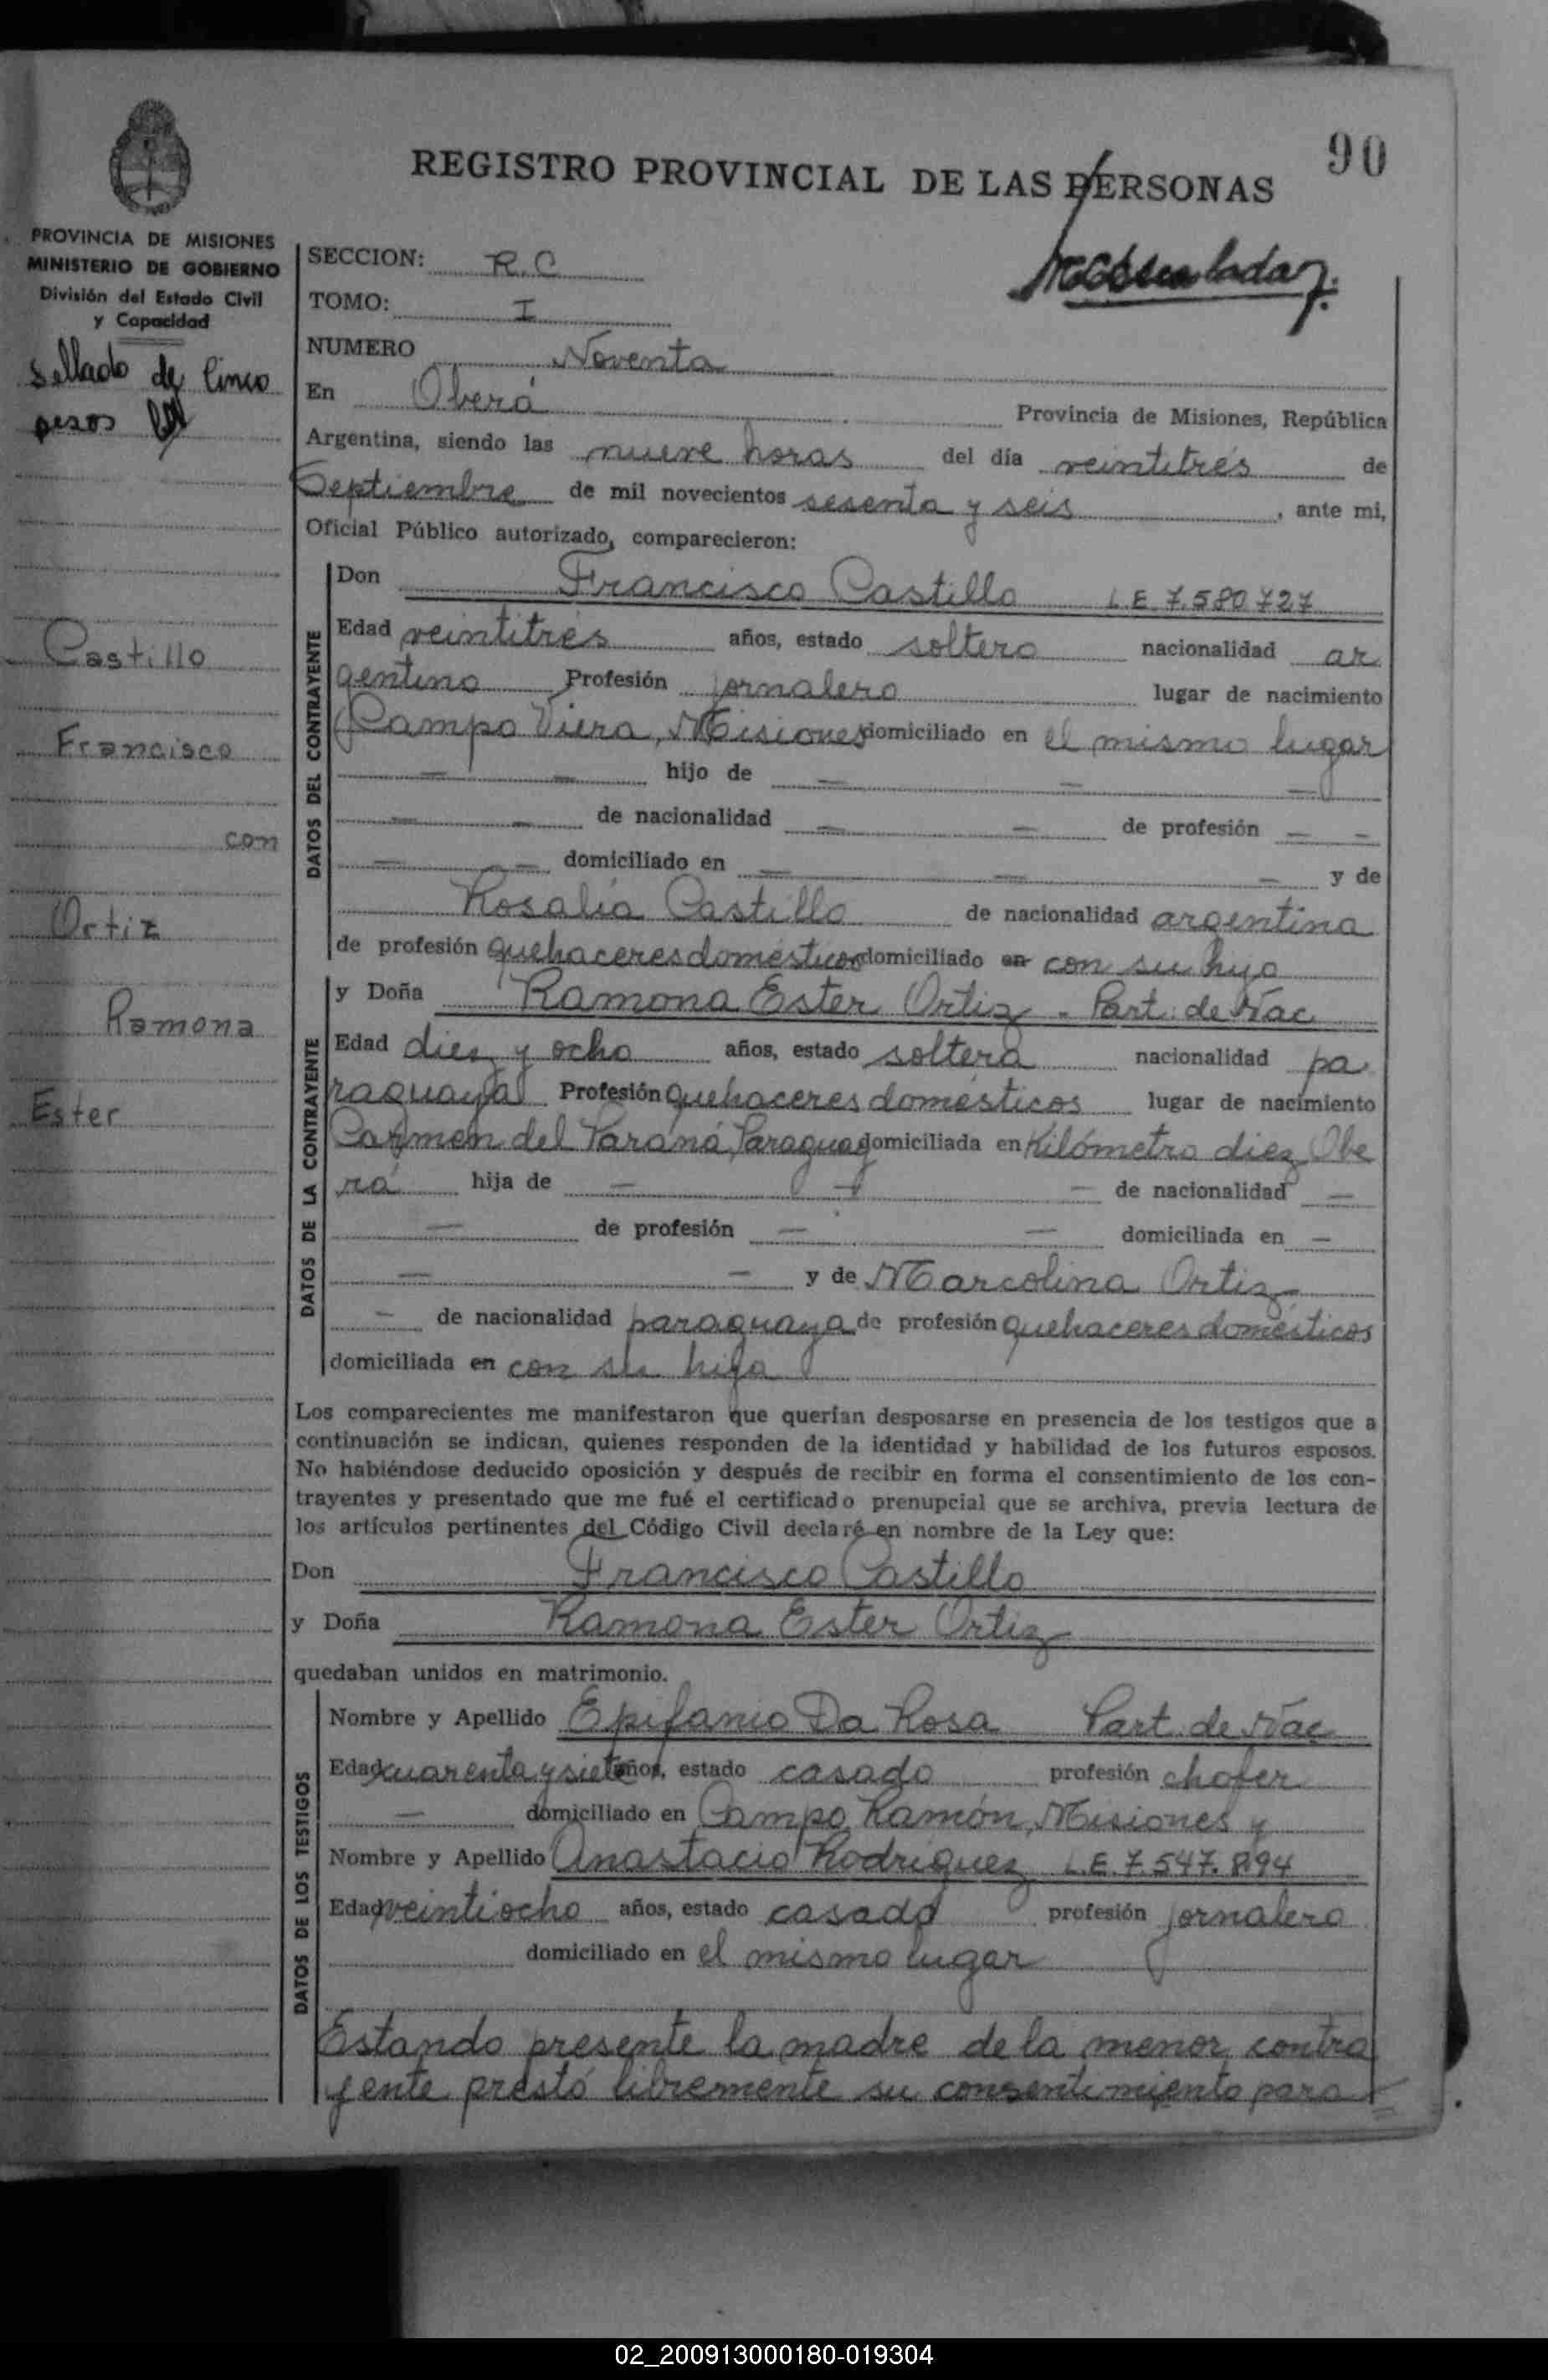 90
REGISTRO PROVINCIAL DE LAS PERSONAS
PROVINCIA DE MISIONES
MINISTERIO DE GOBIERNO
División del Estado Civil
y Capacidad
Sellado de Cinco
pesos
Castillo
Francisco
con
Ortiz
Ramona
Ester
SECCION: R.C
TOMO: I
NUMERO Noventa
En Oberá Provincia de Misiones, República
Argentina, siendo las nueve horas del día veintitrés de
Septiembre de mil novecientos sesenta y seis, ante mi,
Oficial Público autorizado, comparecieron:
DATOS DEL CONTRAYENTE
Don Francisco Castillo L.E 7.580727
Edad veintitrés años, estado soltero nacionalidad ar
gentino Profesión jornalero lugar de nacimiento
Campo Viera, Misiones domiciliado en el mismo lugar
— — hijo de — — —
— — de nacionalidad — — de profesión — —
— — domiciliado en — — — y de
Rosalía Castillo de nacionalidad argentina
de profesión quehaceres domésticos domiciliado en con su hijo
DATOS DE LA CONTRAYENTE
y Doña Ramona Ester Ortiz - Part: de Nac
Edad diez y ocho años, estado soltera nacionalidad pa
raguaya Profesión quehaceres domésticos lugar de nacimiento
Carmen del Paraná, Paraguay domiciliada en Kilómetro diez Obe
rá hija de — — — de nacionalidad —
— de profesión — — domiciliada en —
— — y de Marcolina Ortiz
— de nacionalidad paraguaya de profesión quehaceres domésticos
domiciliada en con su hija
Los comparecientes me manifestaron que querían desposarse en presencia de los testigos que a
continuación se indican, quienes responden de la identidad y habilidad de los futuros esposos.
No habiéndose deducido oposición y después de recibir en forma el consentimiento de los con-
trayentes y presentado que me fué el certificado prenupcial que se archiva, previa lectura de
los artículos pertinentes del Código Civil declaré en nombre de la Ley que:
Don Francisco Castillo
y Doña Ramona Ester Ortiz
quedaban unidos en matrimonio.
DATOS DE LOS TESTIGOS
Nombre y Apellido Epifanio Da Rosa Part. de Nac
Edad cuarenta y siete años, estado casado profesión chofer
— domiciliado en Campo Ramón, Misiones y
Nombre y Apellido Anastacio Rodríguez L.E. 7.547.894
Edad veintiocho años, estado casado profesión jornalero
domiciliado en el mismo lugar
Estando presente la madre de la menor contra
yente prestó libremente su consentimiento para
02_200913000180-019304